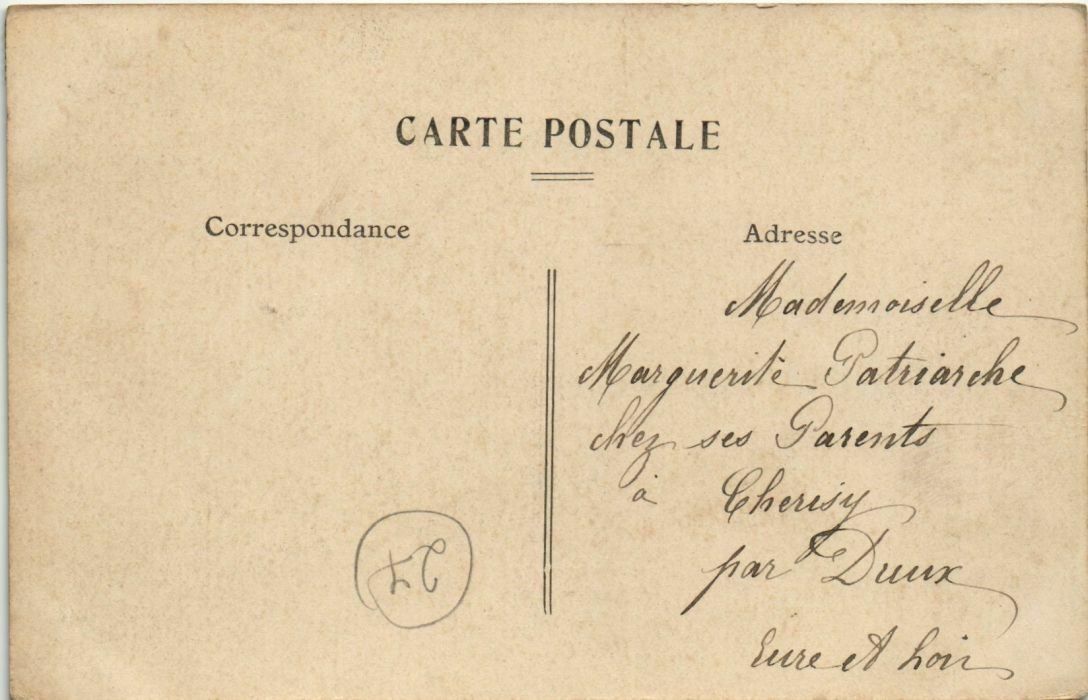 CARTE POSTALE
Correspondance
Adresse
Mademoiselle
Marguerite Patriarche
chez ses Parents
à Cherisy
par Dreux
Eure et Loir
27